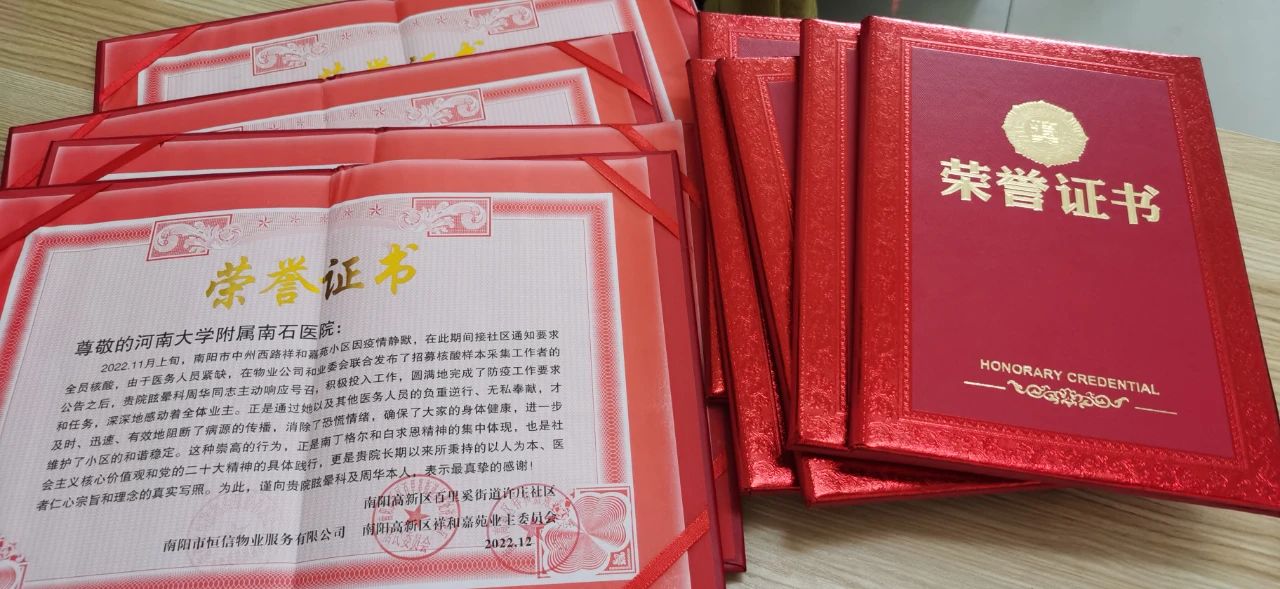 荣誉证书
荣誉证书
尊敬的河南大学附属南石医院：
2022.11月上旬，南阳市中州西路祥和嘉苑小区因疫情静默，在此期间接社区通知要求
全员核酸，由于医务人员紧缺，在物业公司和业委会联合发布了招募核酸样本采集工作者的
公告之后，贵院眩晕科周华同志主动响应号召，积极投入工作，圆满地完成了防疫工作要求
和任务，深深地感动着全体业主。正是通过她以及其他医务人员的负重逆行、无私奉献，才
及时、迅速、有效地阻断了病源的传播，消除了恐慌情绪，确保了大家的身体健康，进一步
维护了小区的和谐稳定。这种崇高的行为，正是南丁格尔和白求恩精神的集中体现，也是社
会主义核心价值观和党的二十大精神的具体践行，更是贵院长期以来所秉持的以人为本、医
者仁心宗旨和理念的真实写照。为此，谨向贵院眩晕科及周华本人，表示最真挚的感谢！
南阳高新区百里奚街道许庄社区
南阳市恒信物业服务有限公司 南阳高新区祥和嘉苑业主委员会
2022.12
荣誉证书
HONORARY CREDENTIAL